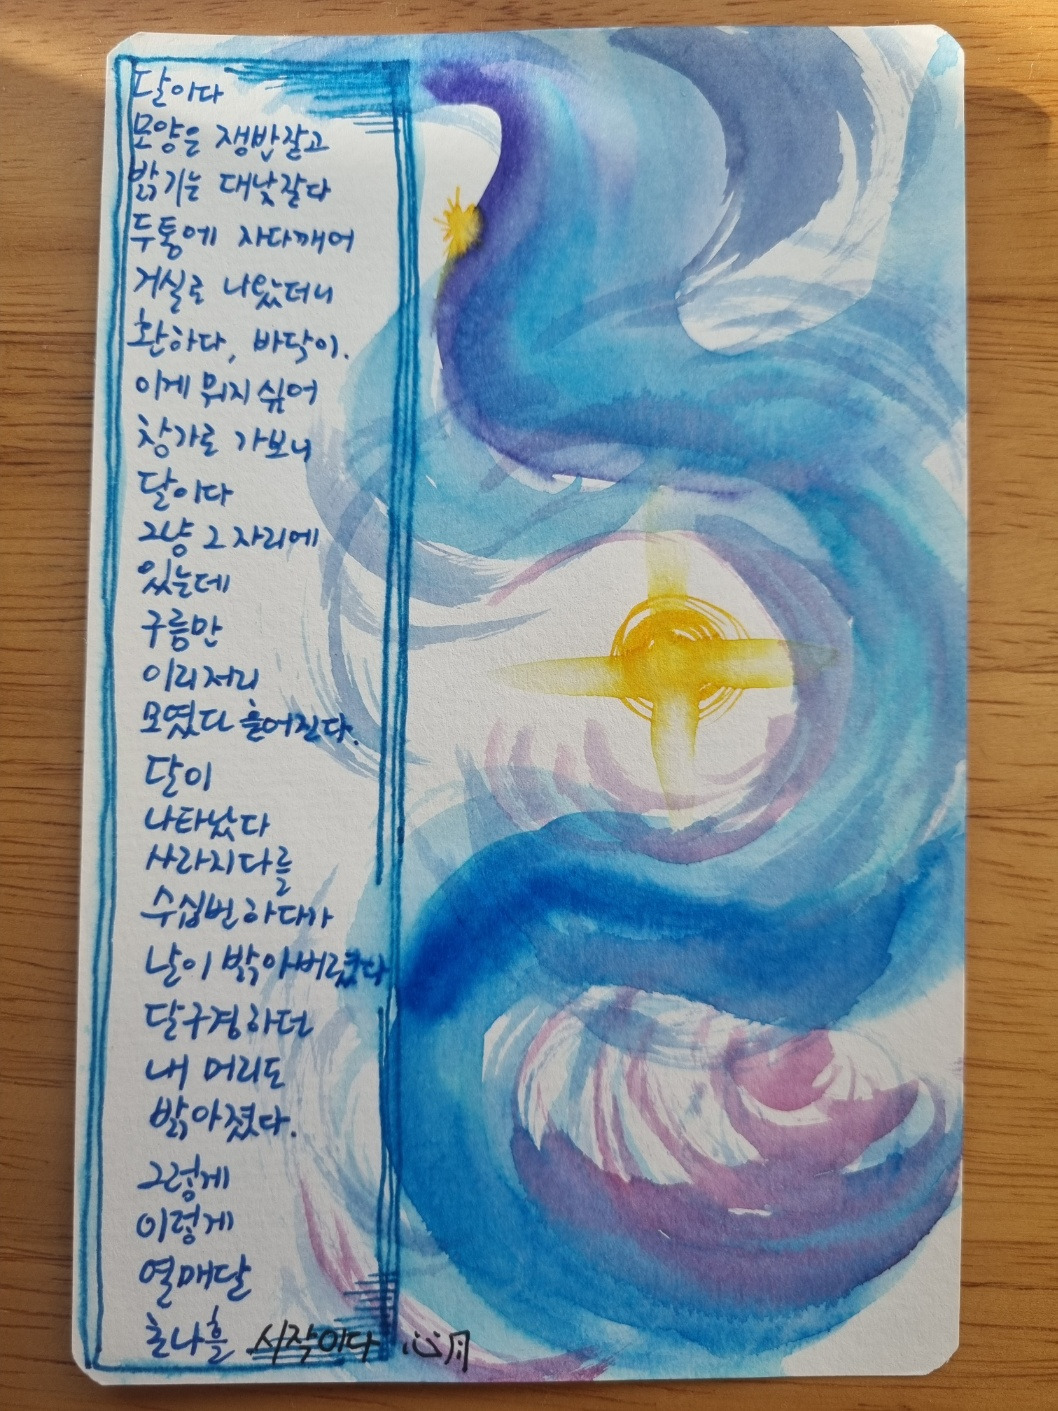 달이다
모양은 쟁반같고
밝기는 대낮같다
두통에 자다깨어
거실로 나왔더니
환하다, 바닥이.
이게 뭐지 싶어
창가로 가보니
달이다
그냥 그 자리에
있는데
구름만
이리저리
모였다 흩어진다.
달이
나타났다
사라지다를
수십번 하다가
날이 밝아버렸다
달구경하던
내 머리도
밝아졌다.
그렇게
이렇게
열매달
초나흘 시작이다 心月